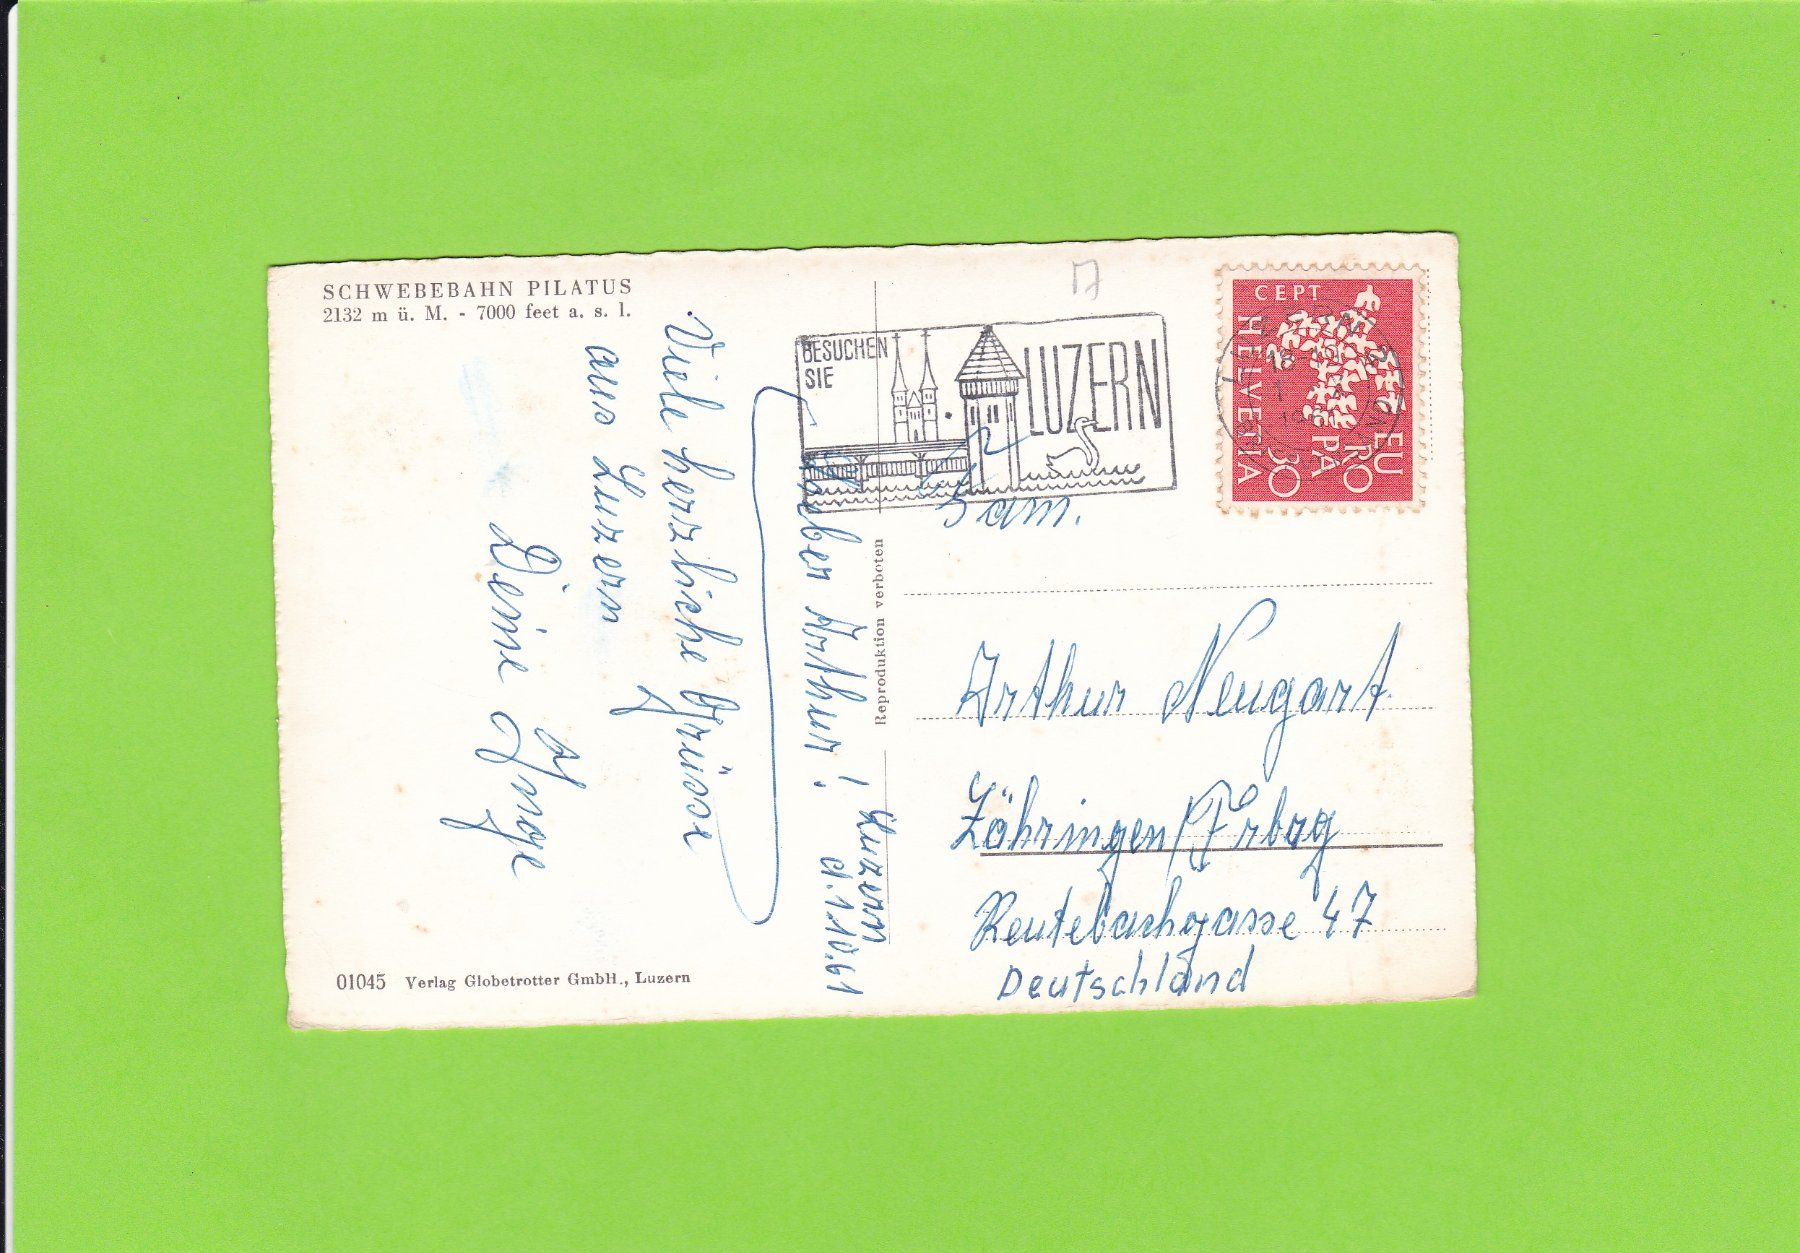 SCHWEBEBAHN PILATUS
2132 m ü. M. - 7000 feet a. s. l.
Luzern
d. 1.10.61
Lieber Arthur!
Viele herzliche Grüsse
aus Luzern
Deine Inge
01045 Verlag Globetrotter GmbH., Luzern
Reproduktion verboten
BESUCHEN
SIE
LUZERN
CEPT
HELVETIA
EU
RO
PA
30
Fam.
Arthur Neugart
Zähringen/Frbrg
Reutebachgasse 47
Deutschland